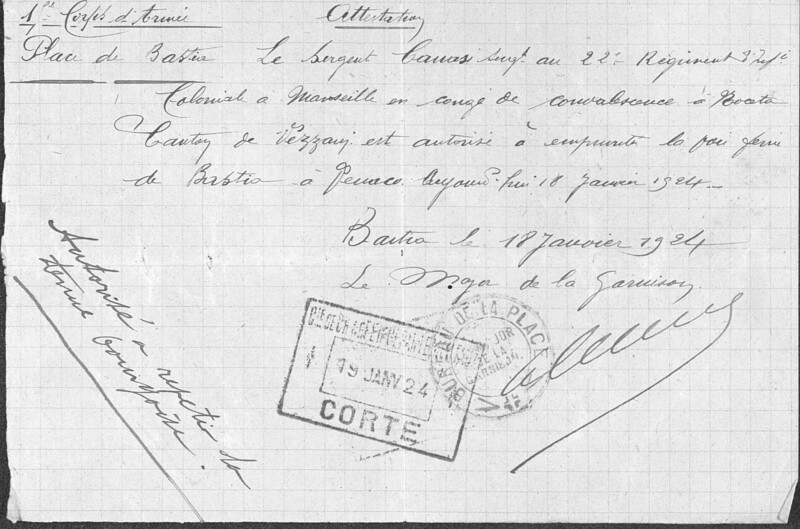 Corps d'Armée
Attestation
Place de Bastia
Le Sergent au 22e Régiment d'Infie
Coloniale à Marseille en congé de convalescence à Rocata
Canton de Vezzani est autorisé à emprunter la voie ferrée
de Bastia à Aujourd'hui 18 Janvier 1924
Bastia le 18 Janvier 1924
Le Major de la Garnison
Autorisé à
tenue bourgeoise.
BUREAU DE LA PLACE
MAJOR
DE LA
GARNISON
19 JANV 24
CORTE